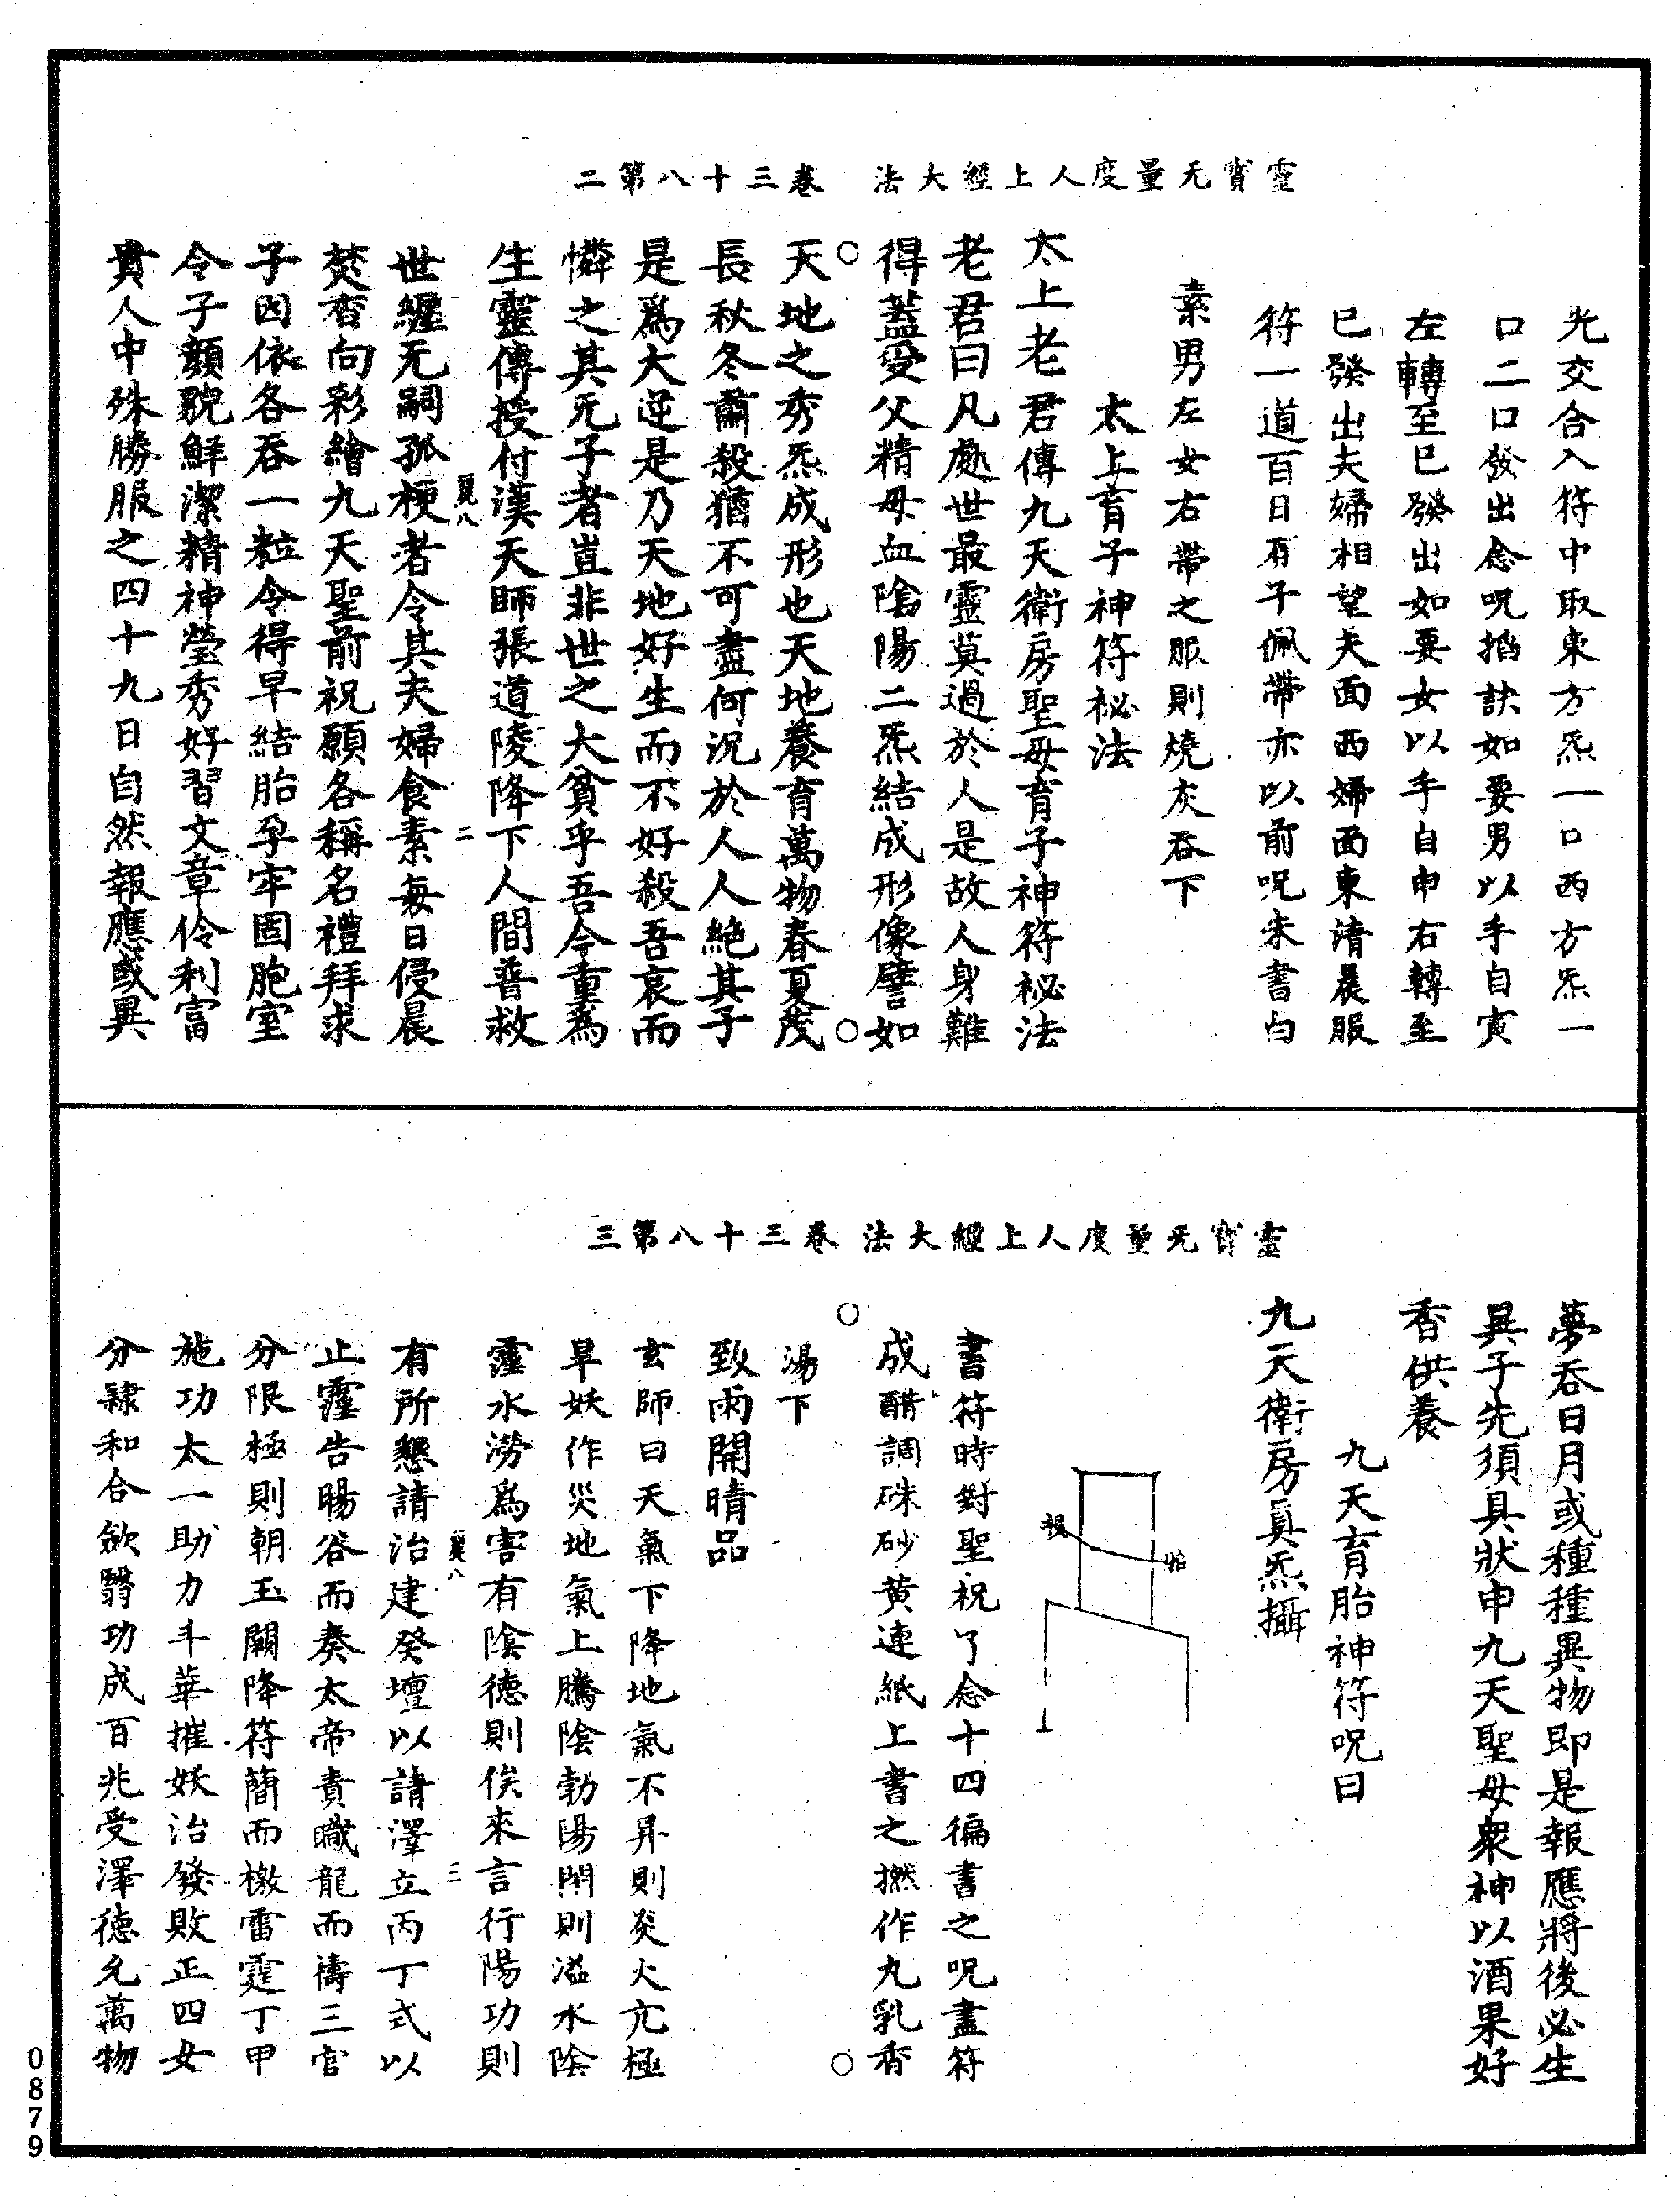 靈寳无量度人上經大法　卷三十八第二
光交合入符中取東方炁一口西方炁一
口二口發出念呪掐訣如要男以手自寅
左轉至巳發出如要女以手自申右轉至
巳發出夫婦相望夫面西婦面東清晨服
符一道百日有子佩帶亦以前呪朱書白
素男左女右帶之服則燒灰吞下
太上育子神符祕法
太上老君傳九天衛房聖母育子神符祕法
老君曰凡處世最靈莫過於人是故人身難
得蓋受父精母血陰陽二炁結成形像譬如
天地之秀炁成形也天地養育萬物春夏茂
長秋冬肅殺猶不可盡何況於人人絶其子
是爲大逆是乃天地好生而不好殺吾哀而
憐之其无子者豈非世之大貧乎吾今重爲
生靈傳授付漢天師張道陵降下人間普救
二
世纏无嗣孤梗者令其夫婦食素每日侵晨
焚香向彩繪九天聖前祝願各稱名禮拜求
子因依各吞一粒令得早結胎孕牢固胞室
令子顏貌鮮潔精神瑩秀好習文章伶利富
貴人中殊勝服之四十九日自然報應或異
靈寳无量度人上經大法　卷三十八第三
夢吞日月或種種異物即是報應將後必生
異子先須具狀申九天聖母衆神以酒果好
香供養
九天育胎神符呪曰
九天衛房真炁攝
書符時對聖祝了念十四徧書之呪盡符
成醋調硃砂黄連紙上書之撚作丸乳香
湯下
致雨開晴品
玄師曰天氣下降地氣不昇則炎火亢極
旱妖作災地氣上騰陰勃陽閉則溢水陰
霪水澇爲害有陰德則俟來言行陽功則
三
有所懇請治建癸壇以請澤立丙丁式以
止霪告暘谷而奏太帝責職龍而禱三官
分限極則朝玉闕降符簡而檄雷霆丁甲
施功太一助力斗華摧妖治發敗正四女
分隷和合歛翳功成百兆受澤德允萬物
0879